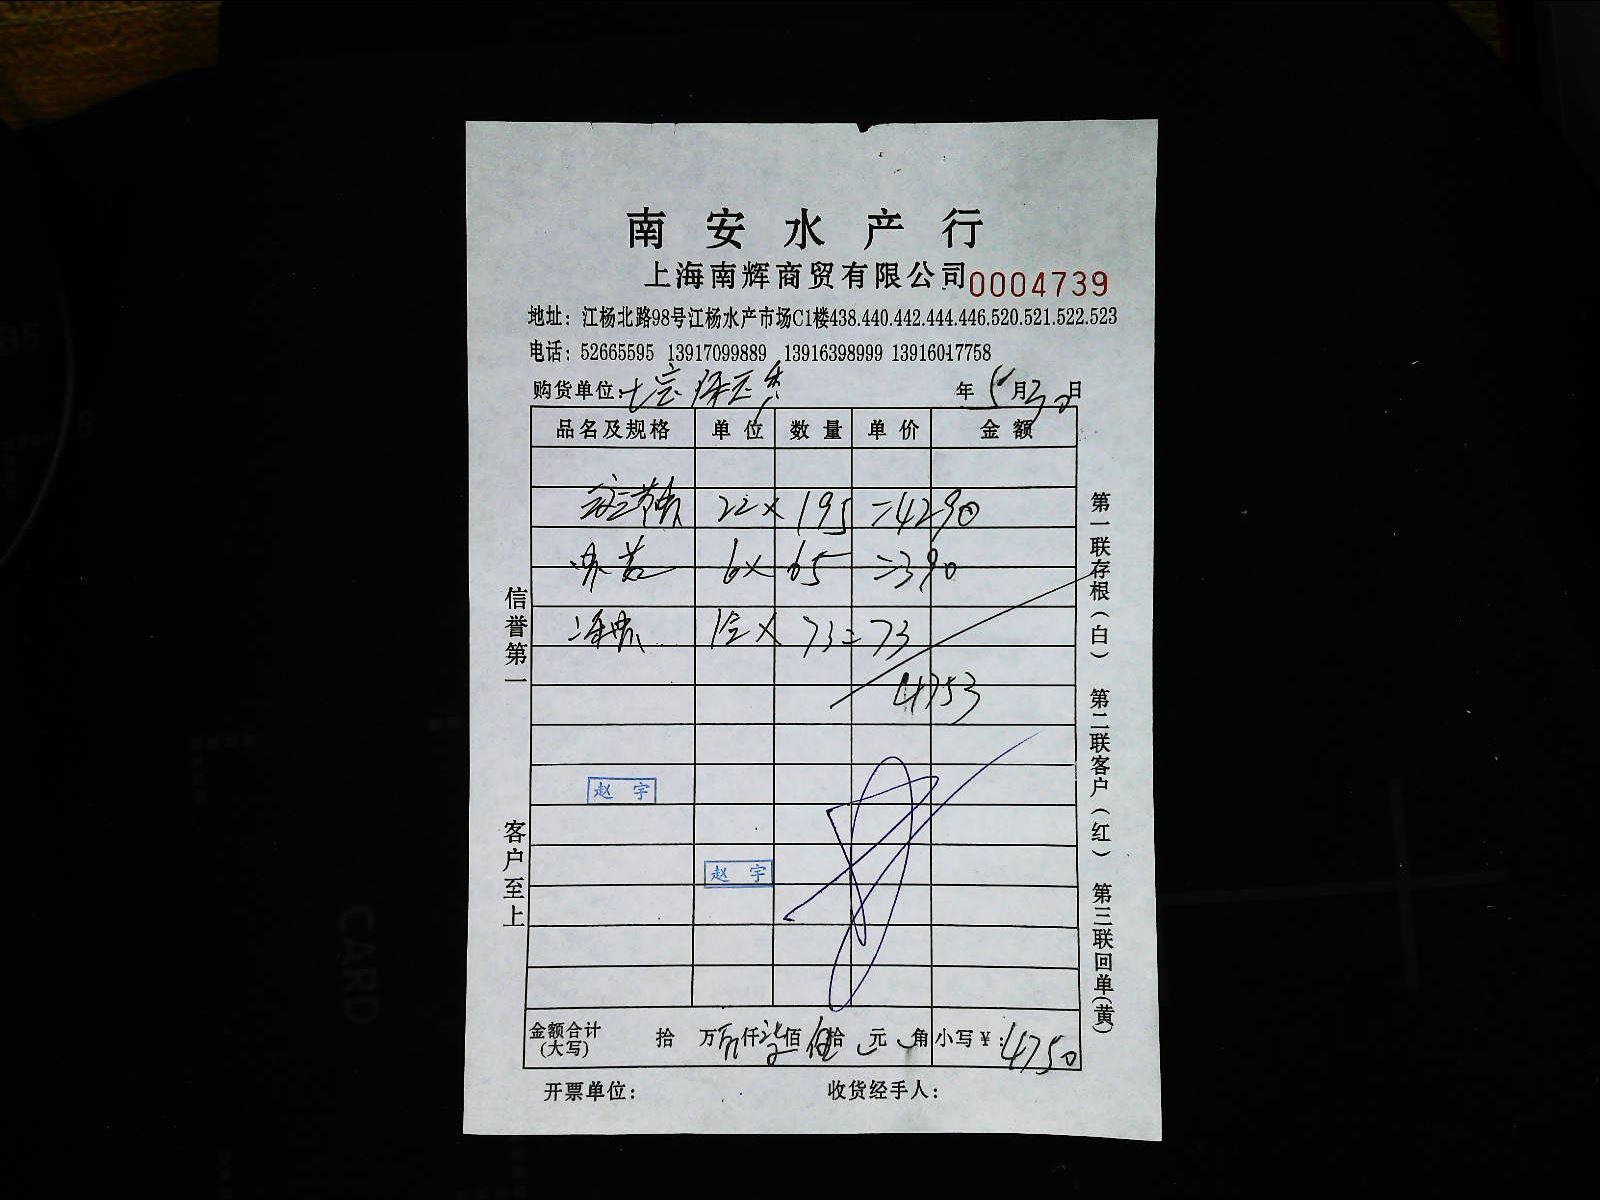 南安水产行
上海南辉商贸有限公司 0004739
地址：江杨北路98号江杨水产市场C1楼438.440.442.444.446.520.521.522.523
电话：52665595 13917099889 13916398999 13916047758
购货单位： 年 5月30日
品名及规格 单位 数量 单价 金额
22 × 195 =4290
6× 65 =390
1 × 73= 73
4753
赵 宇
赵 宇
金额合计(大写) 拾 万 仟 柒佰 伍拾 元 角 小写￥：4750
开票单位： 收货经手人：
信誉第一
客户至上
第一联存根(白) 第二联客户(红) 第三联回单(黄)